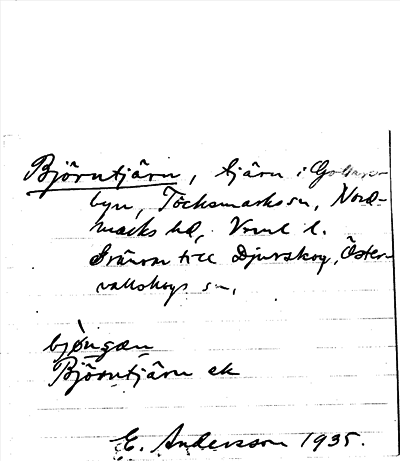 Björntjärn, tjärn i
byn, Töcksmarks sn, Nord-
marks hd, Vrml l.
Gränsar till Djurskog, Öster-
vallskogs sn.
bjø̀nɡæn
Björntjärn ek
E. Andersson 1935.